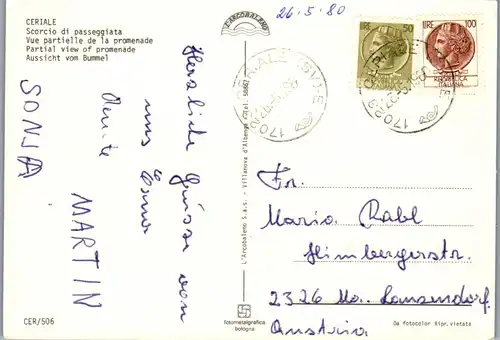 CERIALE
Scorcio di passeggiata
Vue partielle de la promenade
Partial view of promenade
Aussicht vom Bummel
26.5.80
L'ARCOBALENO
LIRE 50
LIRE 100
REPUBBLICA
ITALIANA
CERIALE (SV)
Herzliche Grüsse von
uns
Erna
SONJA
MARTIN
L'Arcobaleno S.a.s. - Villanova d'Albenga - Tel. 58662
Fr.
Maria Rabl
Himbergerstr.
2326 Ma. Lanzendorf
Austria
CER/506
fotometalgrafica
bologna
Da fotocolor Ripr.vietata